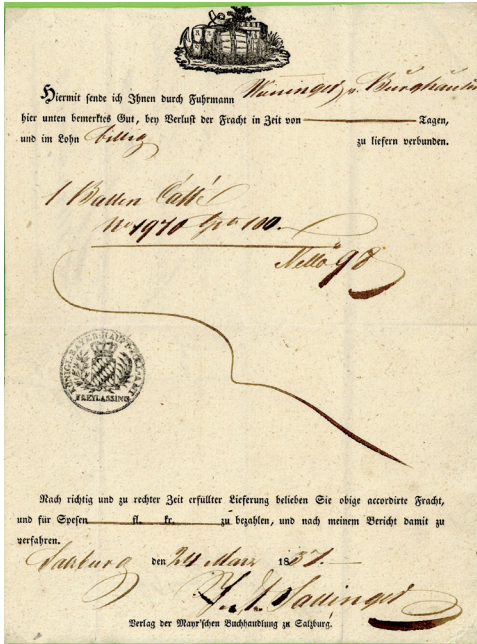 Hiermit sende ich Ihnen durch Fuhrmann Wininger v. Burghausen
hier unten bemerktes Gut, bey Verlust der Fracht in Zeit von Tagen,
und im Lohn billig zu liefern verbunden.
1 Ballen Caffé
No 1970 Spco 100.-
Netto 98
KÖNIGL. BAYER. HAUPT-ZOLLAMT
FREYLASSING
Nach richtig und zu rechter Zeit erfüllter Lieferung belieben Sie obige accordirte Fracht,
und für Spesen fl. kr. zu bezahlen, und nach meinem Bericht damit zu
verfahren.
Salzburg den 24 März 1837.-
Sallinger
Verlag der Mayr'schen Buchhandlung zu Salzburg.